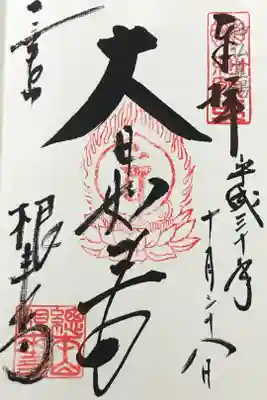 奉拝
平成三十年
十月二十八日
大日如来
根来寺
總本山